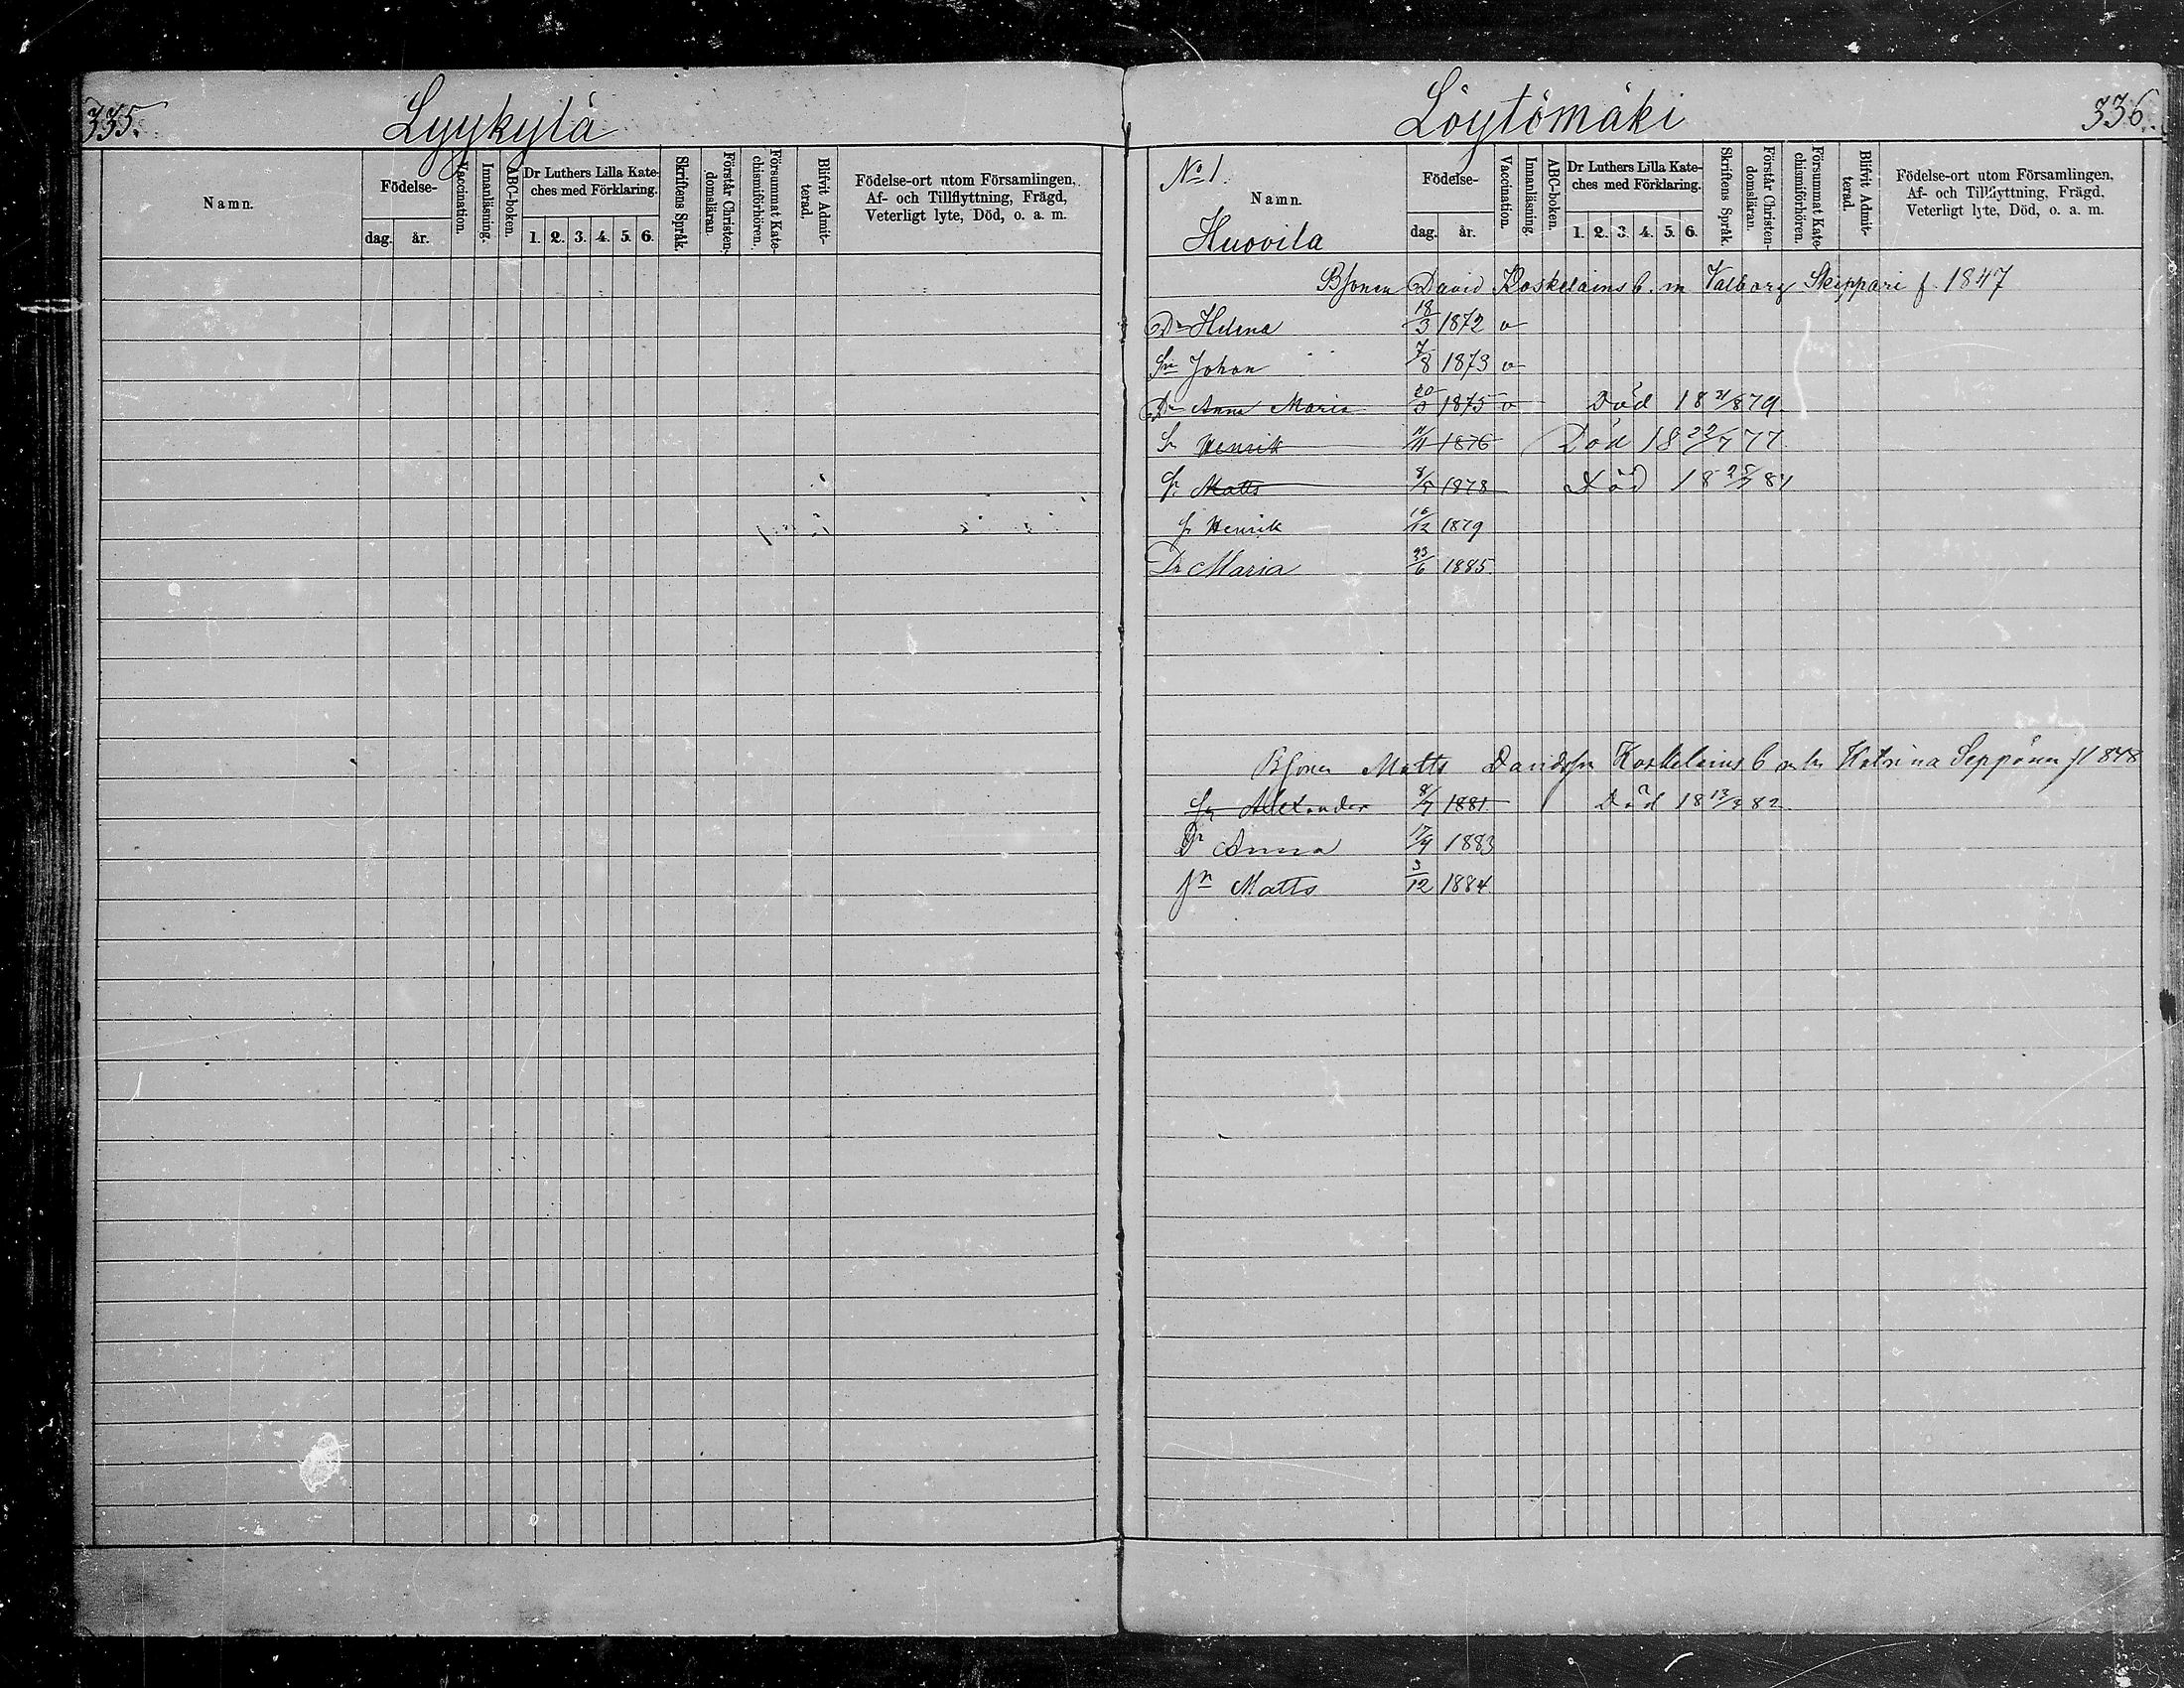 335.
Lyykylä
Namn.
Födelse-
dag. år.
Vaccination.
Innanläsning.
ABC-boken.
Dr Luthers Lilla Kate-
ches med Förklaring.
1. 2. 3. 4. 5. 6.
Skriftens Språk.
Förstår Christen-
domsläran.
Försummat Kate-
chismiförhören.
Blifvit Admit-
terad.
Födelse-ort utom Församlingen,
Af- och Tillflyttning, Frägd,
Veterligt lyte, Död, o. a. m.
Löytömäki
336.
No 1.
Namn.
Huovila
Födelse-
dag. år.
Vaccination.
Innanläsning.
ABC-boken.
Dr Luthers Lilla Kate-
ches med Förklaring.
1. 2. 3. 4. 5. 6.
Skriftens Språk.
Förstår Christen-
domsläran.
Försummat Kate-
chismiförhören.
Blifvit Admit-
terad.
Födelse-ort utom Församlingen,
Af- och Tillflyttning, Frägd,
Veterligt lyte, Död, o. a. m.
Bonen David Koskelains b. m Valborg Skippari f. 1847
Dr Helena 18/3 1872 v
Sn Johan 7/8 1873 v
Dr Anna Maria 20/5 1875 v Död 18 21/8 79.
Sn Henrik 11/11 1876 Död 18 22/7 77
Sn Matts 8/5 1878 Död 18 25/7 81
Sn Henrik 16/12 1879
Dr Maria 23/6 1885.
Bonen Matts Davidsson Koskelains b Katrina Seppönen f 1848
Sn Alexander 8/7 1881 Död 18 13/3 82
Dr Anna 17/9 1883
Sn Matts 3/12 1884